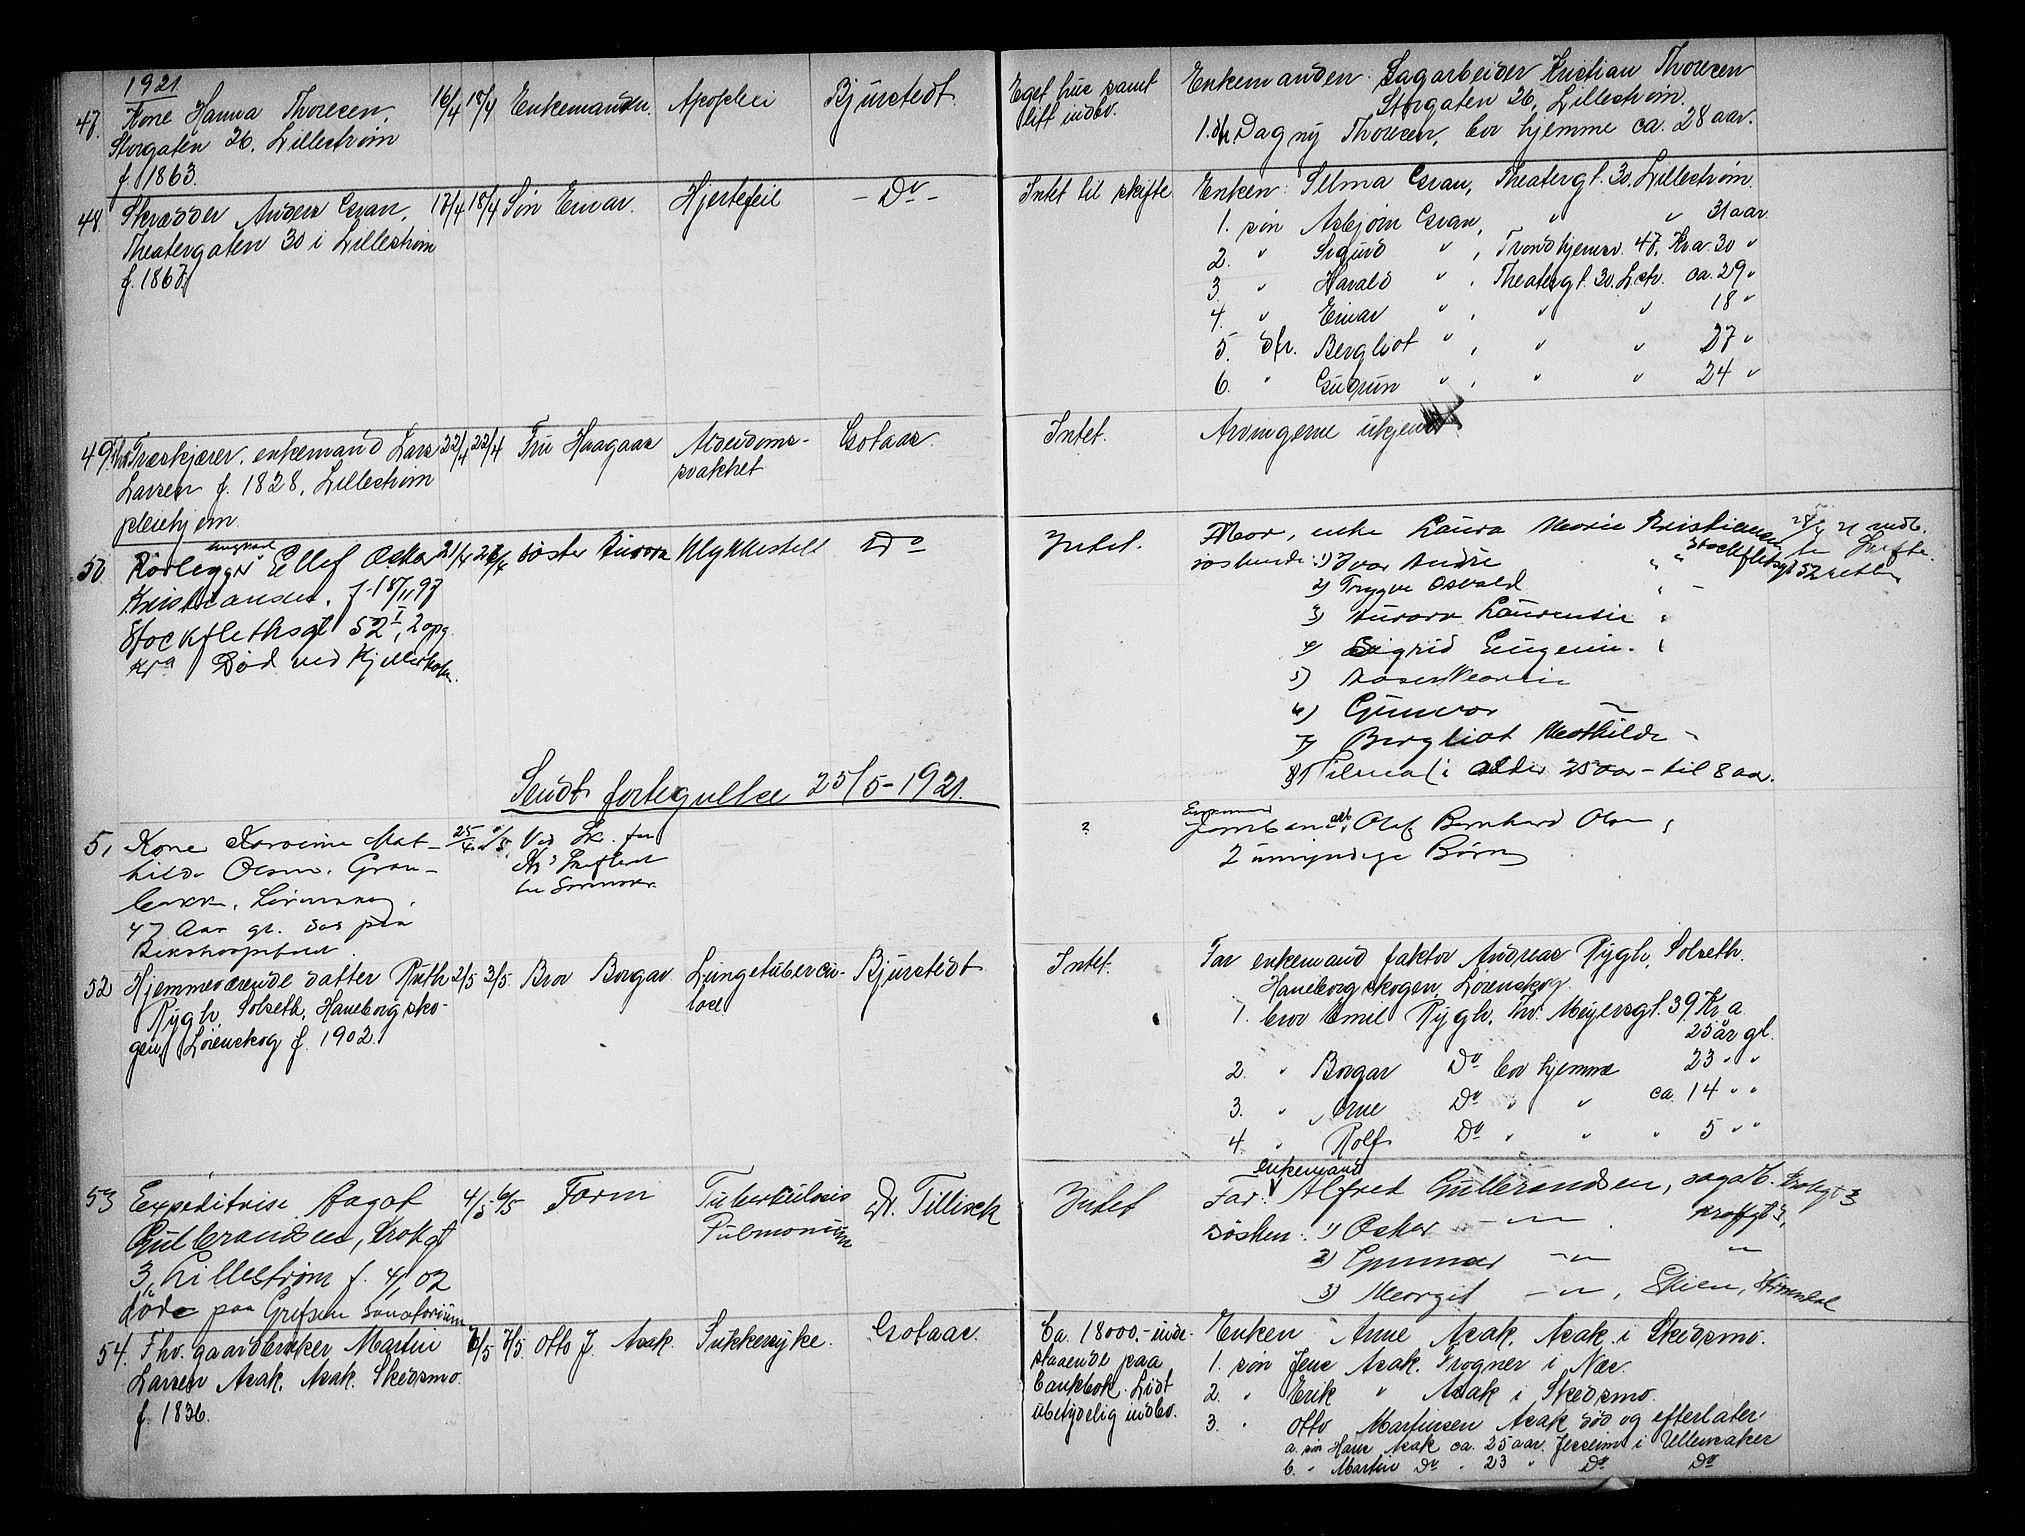 1921
47. Kone Hanna Thoresen, 16/4 17/4 Enkemanden. Apoplexi Bjurstedt. Eget hus samt Enkemanden Sagarbeider Kristian Thoresen
Storgaten 26, Lillestrøm litt indbo. Storgaten 26, Lillestrøm.
f 1863. 1. dtr. Dagny Thoresen, bor hjemme ca. 28 aar.
48. Skrædder Anders Gran, 17/4 18/4 Søn Einar. Hjertefeil - Do - Intet til skifte Enken: Selma Gran, Theatergt. 30. Lillestrøm.
Theatergaten 30 i Lillestrøm 1. søn Asbjørn Gran, " " 31 aar
f. 1867. 2. " Sigurd " , Trondhjemsv. 47, Kra. 30 "
3. " Harald " , Theatergt. 30. Lstr. ca. 29 "
4. " Einar " , " " 18 "
5. dtr. Bergliot " , " " 27 "
6. " Gudrun " , " " 24 "
49. Træskjærer, enkemand Lars 22/4 22/4 Fru Haagaas Alderdoms- Gotaas. Intet. Arvingerne ukjendt
Larsen f. 1828, Lillestrøm svakhet
pleiehjem
50 Rørlegger ungkarl Ellef Oskar 21/4 søster Aurora Ulykkestell Do Intet. Mor, enke Laura Marie Kristiansen
Kristiansen, f. 18/11 97 søskende: 1) Ivar Andre " " Stockflethsgt 52
Stockflethsgt 52 I, 2 opg. 2) Trygve Osvald " -
Kra Død ved Kjellerholen. 3) Aurora Laurentse "
4) Sigrid Eugenie. "
5) Aase Marie
6) Gunvor
7) Bergliot Mathilde -
8) i alder 25 aar - til 8 aar.
Sendt fortegnelse 25/5 - 1921.
51 Kone Karoline Mat- 25/4 /5. Ved Skr. fra ? Enkemand Jernbanearb. Olaf Bernhard Olsen,
hilde Olsen, Gran- 2 umyndige Børn
bakk, Lørenskog,
47 Aar gl. død paa
Rikshospitalet
52 Hjemmeværende datter Ruth 2/5 3/5. Bror Borgar Lungetubercu- Bjurstedt Intet. Far enkemand faktor Andreas Rygh, Solseth.
Rygh, Solseth, Haneborgsko- lose. Haneborgskogen, Lørenskog.
gen, Lørenskog f. 1902. 1. bror Emil Rygh, Thv. Meyersgt. 39, Kr a
25 år gl.
2. " Borgar Do bor hjemme 23 " "
3. " Arne Do " " ca. 14 " "
4. " Rolf Do " " " 5 " "
53 Expeditrise Aagot 4/5 6/5 Farm Tuberkulosis Dr. Tillisch Intet Far: enkemand Alfred Gulbrandsen, sagarb. Krokgt 3
Gulbrandsen, Krokgt Pulmonium Søsken: 1) Oskar - " - . Krokgt 3,
3, Lillestrøm f. 4/1 02 2) Gunnar - " - "
døde paa Grefsen Sanatorium 3) Margit - " - , Skien,
54. Fhv. gaardbruker Martin 6/5 7/5. Otto J. Asak. Sukkersyke. Gotaas. Ca. 18000.- inde- Enken Anne Asak, Asak i Skedsmo.
Larsen Asak, Asak. Skedsmo staaende paa 1. søn Jens Asak. Frogner i Nes.
f. 1836. bankbok. Lidt 2. " Erik " Asak i Skedsmo.
ubetydelig indbo. 3. " Otto Martinsen Asak død og efterlater
a. søn Hans Asak ca. 25 aar. Jessheim i Ullensaker
b. " Martin Do " 23 " Do Do